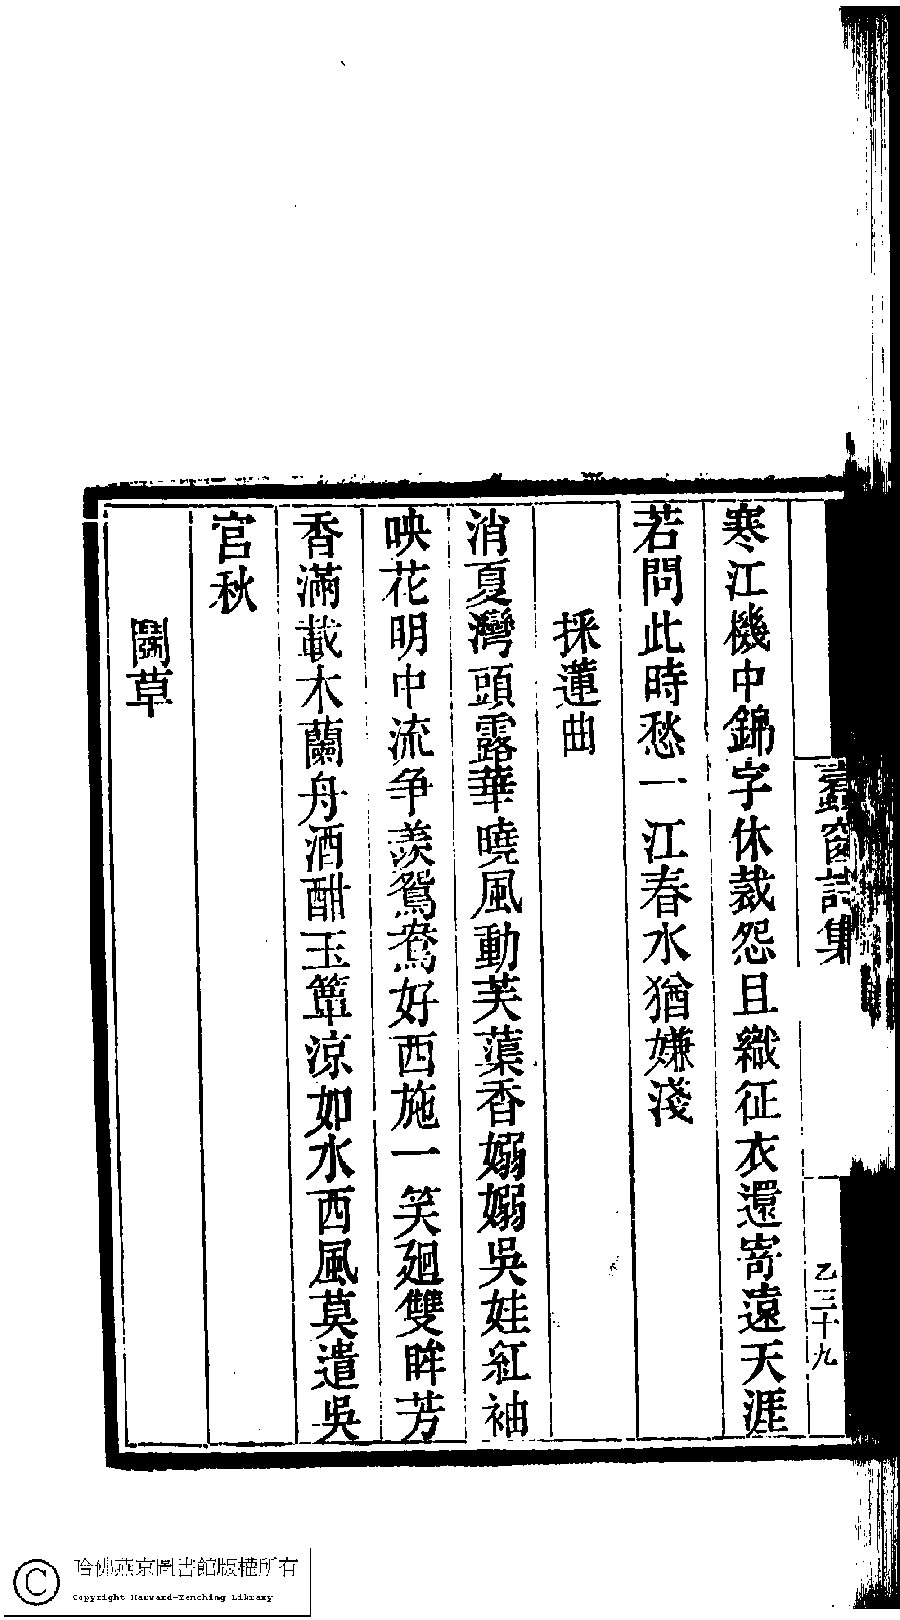 蠧窗詩集
乙三十九
寒江機中錦字休裁怨且織征衣還寄遠天涯
若問此時愁一江春水猶嫌淺
採蓮曲
消夏灣頭露華曉風動芙蕖香嫋嫋吳娃紅袖
映花明中流争羨鴛鴦好西施一笑廻雙眸芳
香滿載木蘭舟酒酣玉簟凉如水西風莫遣吳
宫秋
鬭草
哈佛燕京圖書館版權所有
Copyright Harvard-Yenching Library